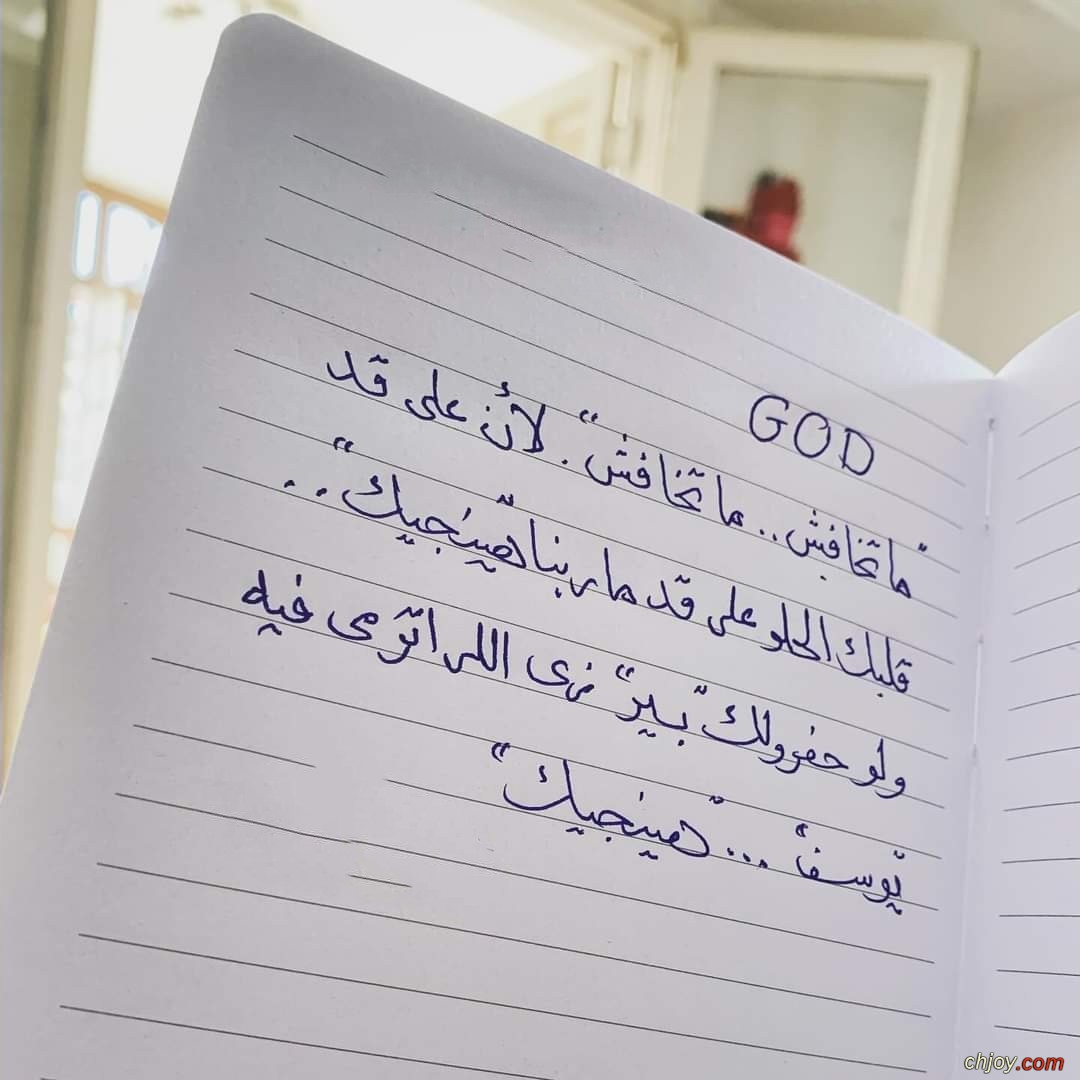 GOD
"ماتخافش.. ماتخافش". لأن على قد
قلبك الحلو على قد ما ربنا "هينجيك"..
ولو حفرولك "بير" زى اللى اترمى فيه
"يوسف" ... "هينجيك"
chjoy.com